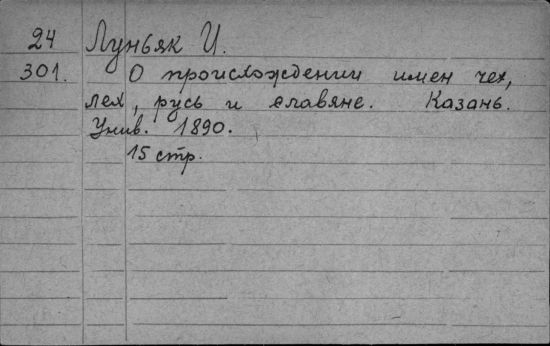 24 Луньяк И.
301. О происхождении имен чех,
лех, русь и славяне. Казань.
Унив. 1890.
15 стр.